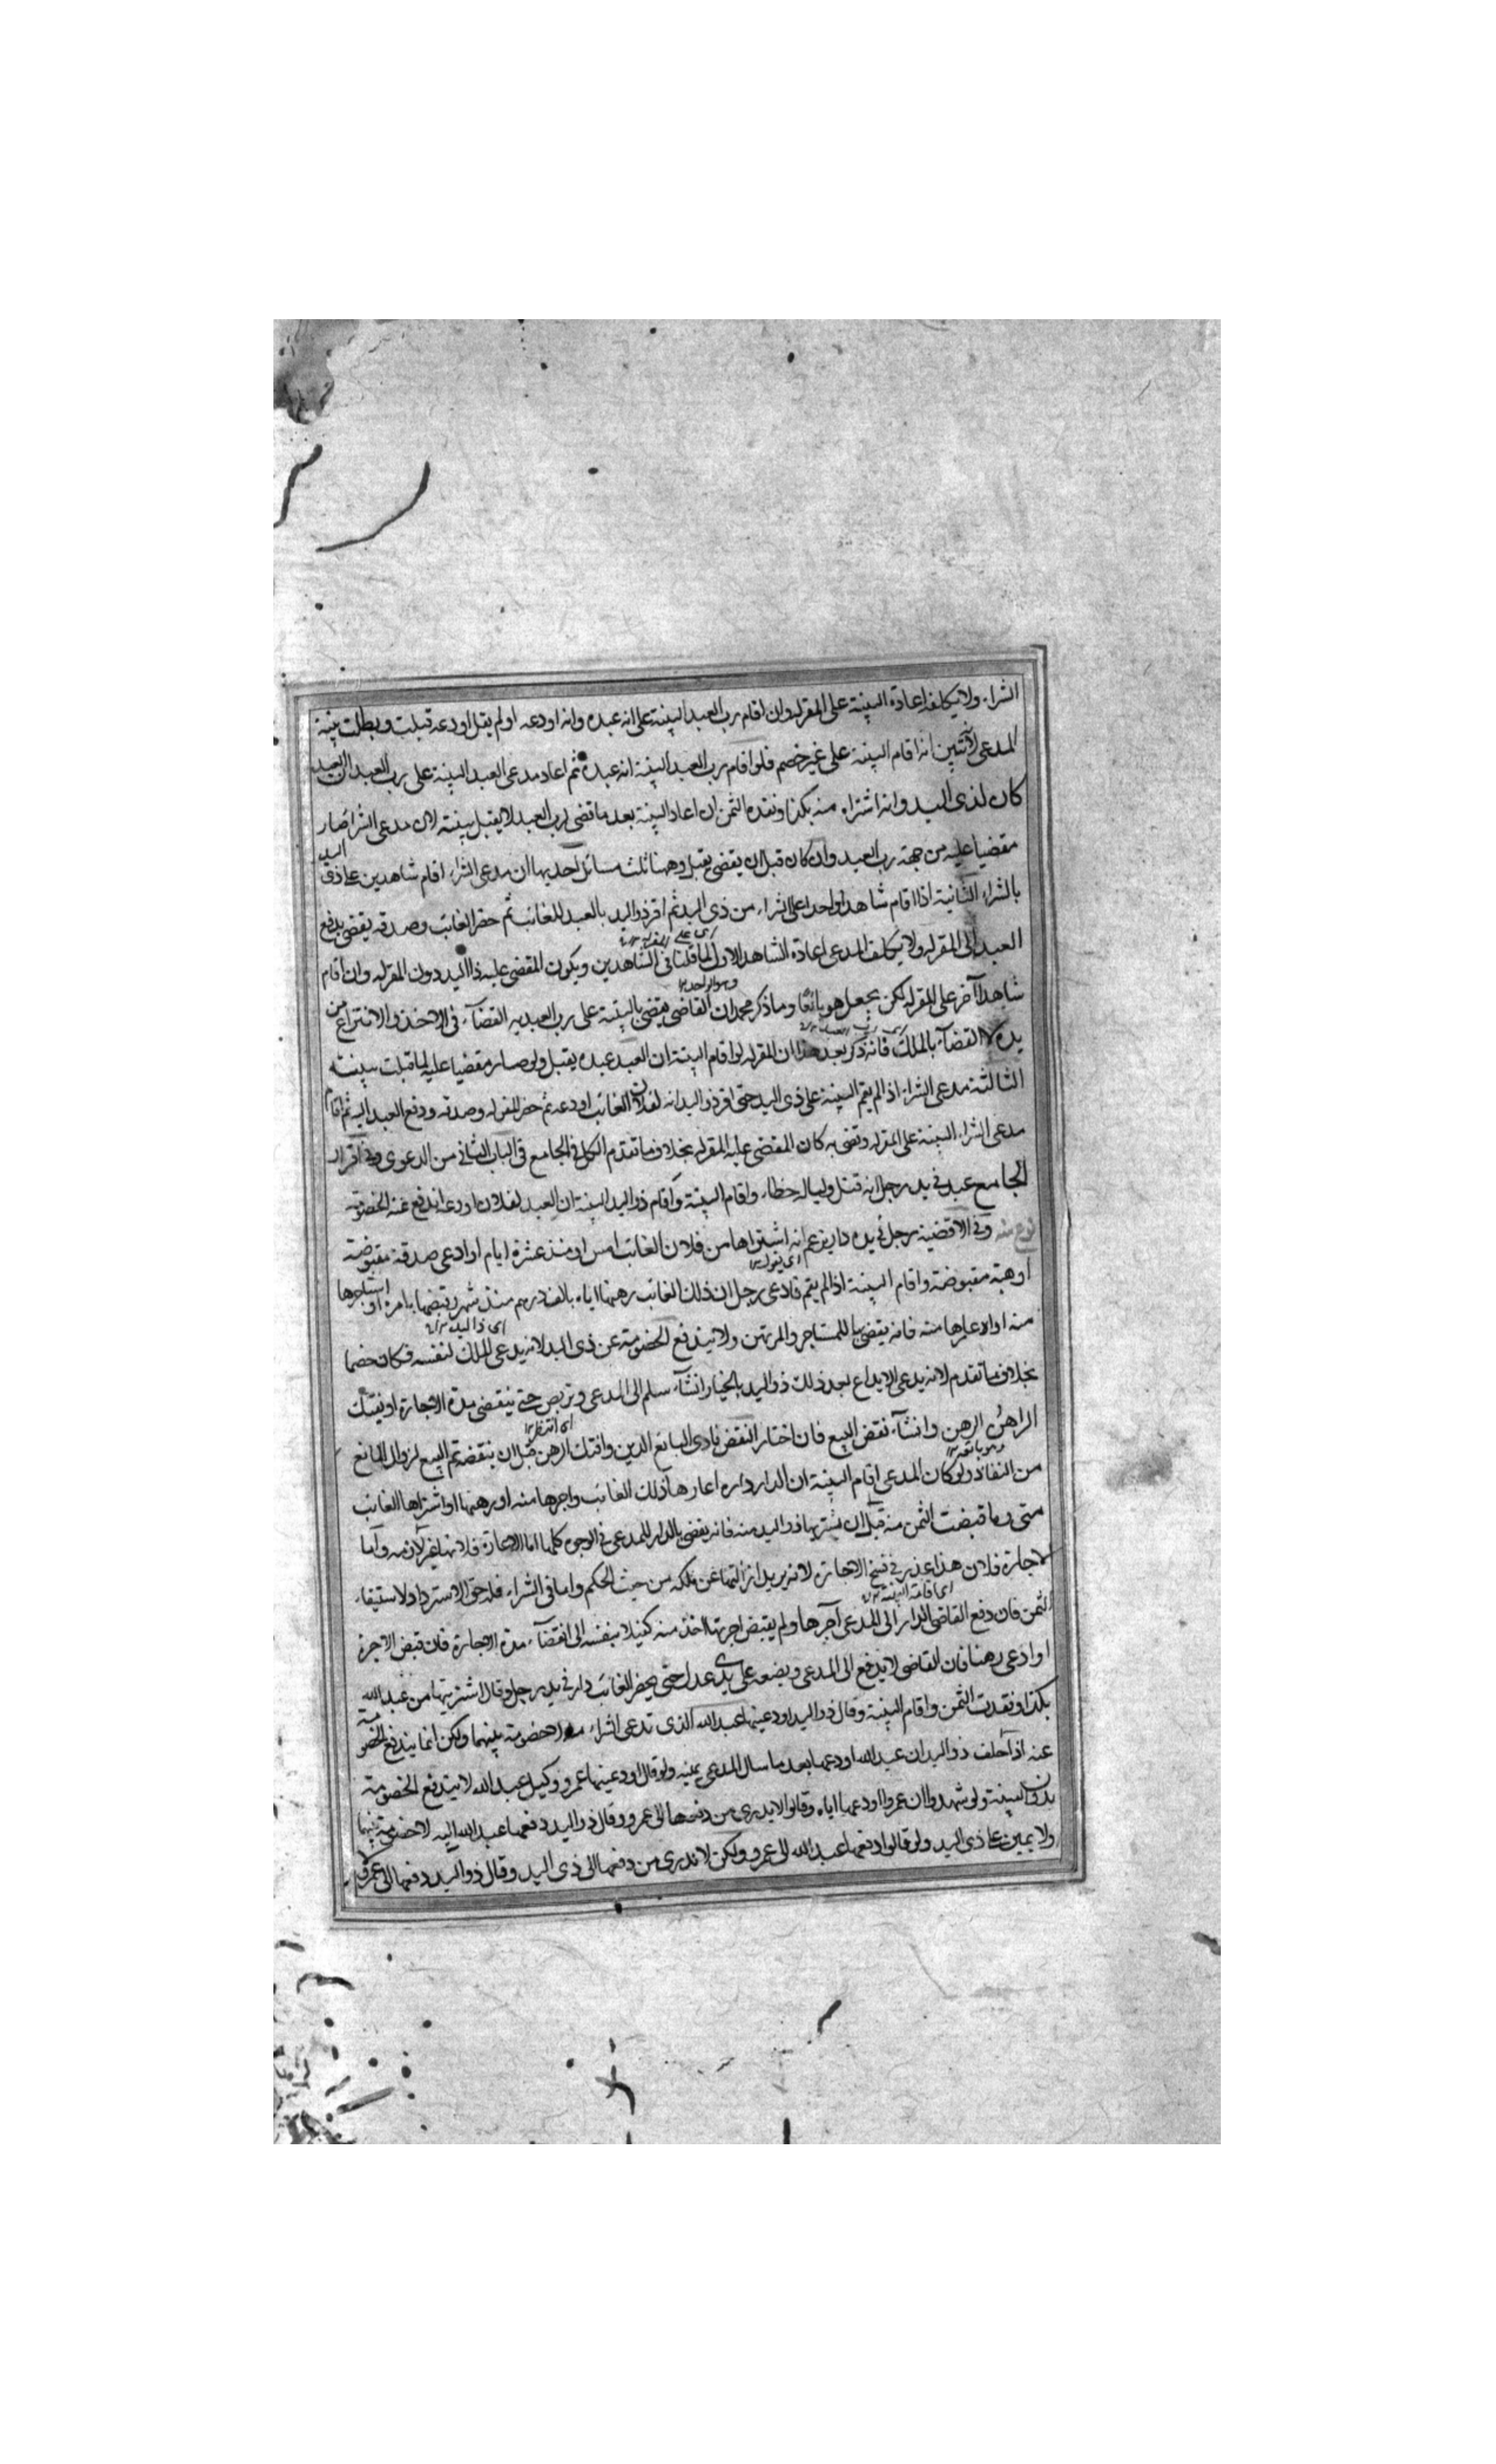 الشراء ولا يكلف اعادة البينة على المقر له وان اقام رب العبد البينة على انه عبده وانه اودعه او لم يقل اودعه قبلت وبطلت بينة
المدعى لاثنين انه اقام البينة على غير خصم فلو اقام رب العبد البينة انه عبده ثم اعاد مدعى العبد البينة على رب العبد ان العبد
كان لذى اليد وانه اشتراه منه بكذا ونقده الثمن ان اعاد البينة بعد ما قضى لرب العبد لا يقبل بينته لان مدعى الشرا صار
مقضيا عليه من جهة رب العبد وان كان قبل ان يقضى يقبل وههنا ثلث مسائل احديها ان مدعى الشراء اقام شاهدين على ذى اليد
بالشراء الثانية اذا اقام شاهدا واحدا على الشراء من ذى اليد ثم اقر ذو اليد بالعبد للغائب ثم حضر الغائب وصدقه يقضى بدفع
اى على المقر له ١٢
العبد الى المقر له ولا يكلف المدعى اعادة الشاهد الاول لما قلنا فى الشاهدين ويكون المقضى عليه ذا اليد دون المقر له وان اقام
وهو الواحد ١٢
شاهدا آخر على المقر له لكن يجعل هو بائعا وما ذكر محمد ان القاضى يقضى بالبينة على رب العبد يريد به القضآء فى الاخذ والانتزاع من
يده لا القضآء بالملك فانه ذكر بعد هذا ان المقر له لو اقام البينة ان العبد عبده يقبل ولو صار مقضيا عليه لما قبلت بينته
الثالثة مدعى الشراء اذا لم يقم البينة على ذى اليد حتى اقر ذو اليد انه لفلان الغائب اودعه ثم حضر المقر له وصدقه ودفع العبد اليه ثم اقام
مدعى الشراء البينة على المقر له وقضى به كان المقضى عليه المقر له بخلاف ما تقدم الكل فى الجامع فى الباب الثانى من الدعوى وفى اقرار
الجامع عبد فى يد رجل انه قتل وليا له خطاء واقام البينة واقام ذو اليد البينة ان العبد لفلان اودعه اندفع عنه الخصومة
نوع منه وفى الاقضية رجل فى يده دار يزعم انه اشتراها من فلان الغائب امس او منذ عشرة ايام او ادعى صدقة مقبوضة
اى يقول ١٢
او هبة مقبوضة واقام البينة اذا لم يقم فادعى رجل ان ذلك الغائب رهنها اياه بالف درهم منذ شهر وقبضها بامره او استاجرها
اى ذا اليد ١٢
منه او اعارها منه فانه يقضى بها للمستاجر والمرتهن ولا يندفع الخصومة عن ذى اليد لانه يدعى الملك لنفسه فكان خصما
بخلاف ما تقدم لانه يدعى الايداع بعد ذلك ذو اليد بالخيار ان شآء سلم الى المدعى وتربص حتى ينقضى مدة الاجارة او يفتك
اى انتظر ١٢
الراهن الرهن وان شآء نقض البيع فان اختار النقض فادى البائع الدين وافتك الرهن قبل ان ينقضه تم البيع لزوال المانع
من النفاذ ولو كان المدعى اقام البينة ان الدار داره اعارها ذلك الغائب واجرها منه او رهنها او اشتراها الغائب
منى وما قبضت الثمن منه قبل ان يشتريها ذو اليد منه فانه يقضى بالدار للمدعى فى الوجوه كلها اما الاعارة فلانها غير لازمه واما
الاجارة فلان هذا عذر فى فسخ الاجارة لانه يريد ازالتها عن ملكه من حيث الحكم واما فى الشراء فله حق الاسترداد لاستيفاء
اى اقامة البينة ١٢
الثمن فان دفع القاضى الدار الى المدعى آجرها ولم يقبض اجرتها اخذ منه كفيلا بنفسه الى انقضآء مدة الاجارة فان قبض الاجرة
او ادعى رهنا فان القاضى لا يدفع الى المدعى ويضعه على يدى عدل حتى يحضر الغائب دار فى يد رجل وقال اشتريتها من عبد الله
بكذا ونقدت الثمن واقام البينة وقال ذو اليد اودعنيها عبد الله الذى تدعى الشراء منه لا خصومة بينهما ولكن انما يندفع الخصومة
عنه اذا حلف ذو اليد ان عبد الله اودعها بعد ما سال المدعى يمينه ولو قال اودعنيها عمرو وكيل عبد الله لا يندفع الخصومة
بدون البينة ولو شهدوا ان عمروا اودعها اياه وقالوا لا يدرى من دفعها الى عمرو وقال ذو اليد دفعها عبد الله اليه لا خصومة بينهما
ولا يمين على ذى اليد ولو قالوا دفعها عبد الله الى عمرو ولكن لا ندرى من دفعها الى ذى اليد وقال ذو اليد دفعها الى عمرو